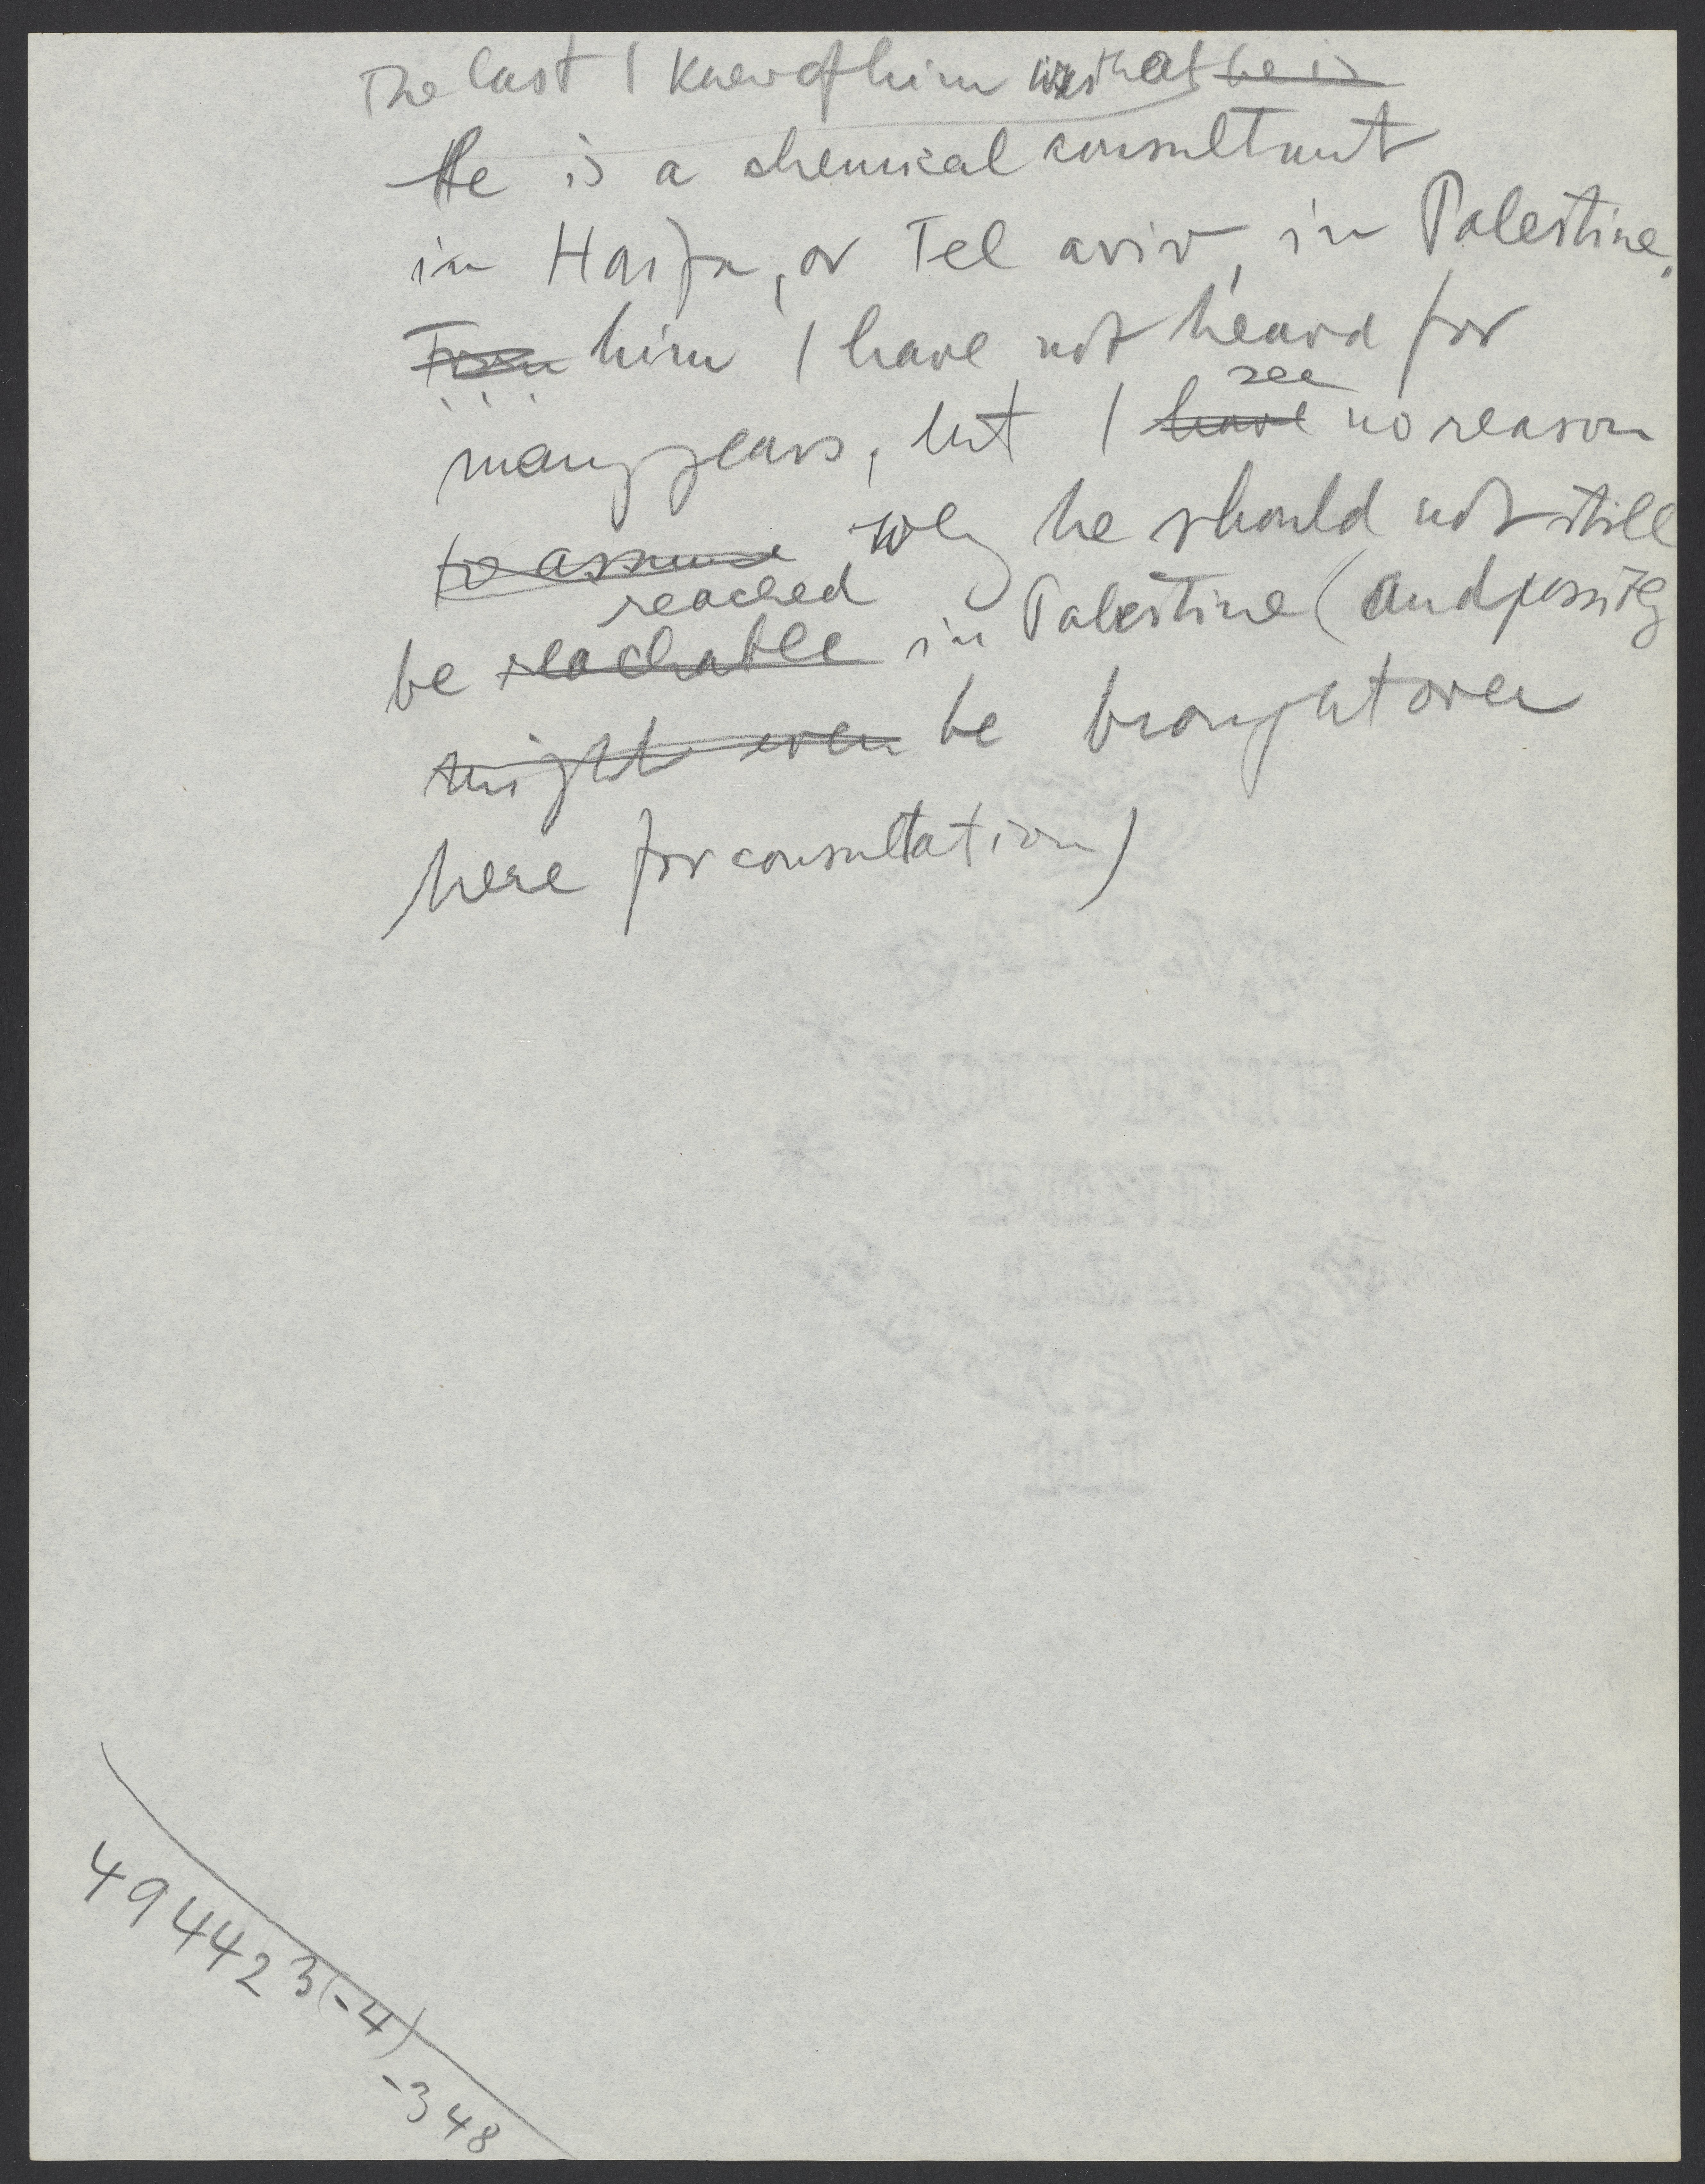 The last I knew of him was that he is
He is a chemical consultant
in Haifa, or Tel aviv, in Palestine.
From him I have not heard for
see
many years, but I have no reason
to assume why he should not still
reached
be reachable in Palestine (and possibly
might even be brought over
here for consultation)
494423(-4)
-348